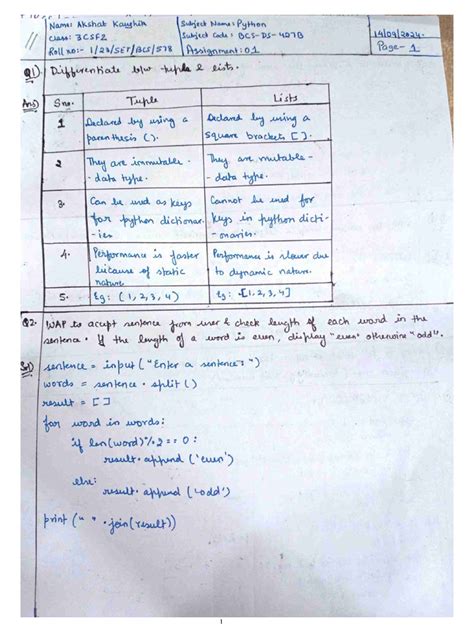 Name: Akshat Kaushik
Subject Name: Python
Class: 3CSF2
Subject Code: BCS-DS-427B
14/09/2024.
Roll no:- 1/23/SET/BCS/578
Assignment: 01
Page- 1
Q1) Differentiate b/w tuple & lists.
Ans) Sno. Tuple Lists
1 Declared by using a Declared by using a
parenthesis (). square brackets [ ].
2 They are immutable - They are mutable -
- data type. - data type.
3. Can be used as keys Cannot be used for
for python dictionar- keys in python dicti-
- ies - onaries.
4. Performance is faster Performance is slower due
because of static to dynamic nature.
nature
5. Eg: (1, 2, 3, 4) Eg: - [1, 2, 3, 4]
Q2. WAP to accept sentence from user & check length of each word in the
sentence. If the length of a word is even, display "even" otherwise "odd".
Sol) sentence = input ("Enter a sentence: ")
words = sentence . split ()
result = [ ]
for word in words:
if len(word) % 2 == 0 :
result . append ('even')
else:
result . append ('odd')
print (" " . join (result))
1